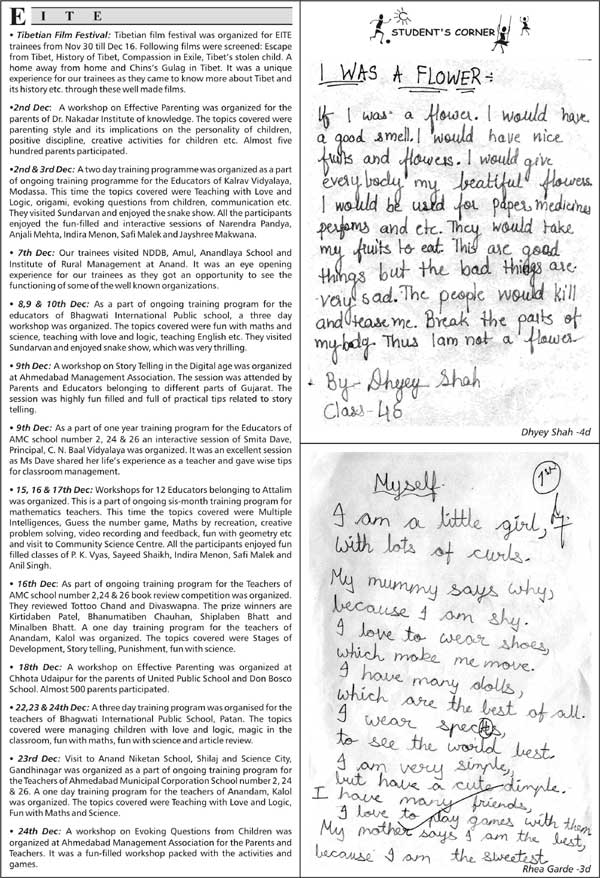 EITE
• Tibetian Film Festival: Tibetian film festival was organized for EITE
trainees from Nov 30 till Dec 16. Following films were screened: Escape
from Tibet, History of Tibet, Compassion in Exile, Tibet's stolen child. A
home away from home and Chins's Gulag in Tibet. It was a unique
experience for our trainees as they came to know more about Tibet and
its history etc. through these well made films.
•2nd Dec: A workshop on Effective Parenting was organized for the
parents of Dr. Nakadar Institute of knowledge. The topics covered were
parenting style and its implications on the personality of children,
positive discipline, creative activities for children etc. Almost five
hundred parents participated.
•2nd & 3rd Dec: A two day training programme was organized as a part
of ongoing training programme for the Educators of Kalrav Vidyalaya,
Modassa. This time the topics covered were Teaching with Love and
Logic, origami, evoking questions from children, communication etc.
They visited Sundarvan and enjoyed the snake show. All the participants
enjoyed the fun-filled and interactive sessions of Narendra Pandya,
Anjali Mehta, Indira Menon, Safi Malek and Jayshree Makwana.
• 7th Dec: Our trainees visited NDDB, Amul, Anandlaya School and
Institute of Rural Management at Anand. It was an eye opening
experience for our trainees as they got an opportunity to see the
functioning of some of the well known organizations.
• 8,9 & 10th Dec: As a part of ongoing training program for the
educators of Bhagwati International Public school, a three day
workshop was organized. The topics covered were fun with maths and
science, teaching with love and logic, teaching English etc. They visited
Sundarvan and enjoyed snake show, which was very thrilling.
• 9th Dec: A workshop on Story Telling in the Digital age was organized
at Ahmedabad Management Association. The session was attended by
Parents and Educators belonging to different parts of Gujarat. The
session was highly fun filled and full of practical tips related to story
telling.
• 9th Dec: As a part of one year training program for the Educators of
AMC school number 2, 24 & 26 an interactive session of Smita Dave,
Principal, C. N. Baal Vidyalaya was organized. It was an excellent session
as Ms Dave shared her life's experience as a teacher and gave wise tips
for classroom management.
• 15, 16 & 17th Dec: Workshops for 12 Educators belonging to Attalim
was organized. This is a part of ongoing six-month training program for
mathematics teachers. This time the topics covered were Multiple
Intelligences, Guess the number game, Maths by recreation, creative
problem solving, video recording and feedback, fun with geometry etc
and visit to Community Science Centre. All the participants enjoyed fun
filled classes of P. K. Vyas, Sayeed Shaikh, Indira Menon, Safi Malek and
Anil Singh.
• 16th Dec: As part of ongoing training program for the Teachers of
AMC school number 2,24 & 26 book review competition was organized.
They reviewed Tottoo Chand and Divaswapna. The prize winners are
Kirtidaben Patel, Bhanumatiben Chauhan, Shiplaben Bhatt and
Minalben Bhatt. A one day training program for the teachers of
Anandam, Kalol was organized. The topics covered were Stages of
Development, Story telling, Punishment, fun with science.
• 18th Dec: A workshop on Effective Parenting was organized at
Chhota Udaipur for the parents of United Public School and Don Bosco
School. Almost 500 parents participated.
• 22,23 & 24th Dec: A three day training program was organised for the
teachers of Bhagwati International Public School, Patan. The topics
covered were managing children with love and logic, magic in the
classroom, fun with maths, fun with science and article review.
• 23rd Dec: Visit to Anand Niketan School, Shilaj and Science City,
Gandhinagar was organized as a part of ongoing training program for
the Teachers of Ahmedabad Municipal Corporation School number 2, 24
& 26. A one day training program for the teachers of Anandam, Kalol
was organized. The topics covered were Teaching with Love and Logic,
Fun with Maths and Science.
• 24th Dec: A workshop on Evoking Questions from Children was
organized at Ahmedabad Management Association for the Parents and
Teachers. It was a fun-filled workshop packed with the activities and
games.
STUDENT'S CORNER
I WAS A FLOWER :-
If I was a flower. I would have
a good smell. I would have nice
fruits and flowers. I would give
everybody my beatiful flowers.
I would be used for paper, medicines
perfoms and etc. They would take
my fruits to eat. This are good
things but the bad things are
very sad. The people would kill
and tease me. Break the parts of
my body. Thus I am not a flower
By - Dhyey Shah
Class - 4B
Dhyey Shah -4d
1st
Myself
I am a little girl,
with lots of curls.
My mummy says why,
because I am shy.
I love to wear shoes,
which make me move.
I have many dolls,
which are the best of all.
I wear specs,
to see the world best.
I am very simple,
but have a cute dimple.
I have many friends,
I love to play games with them
My mother says I am the best,
because I am the sweetest
Rhea Garde -3d